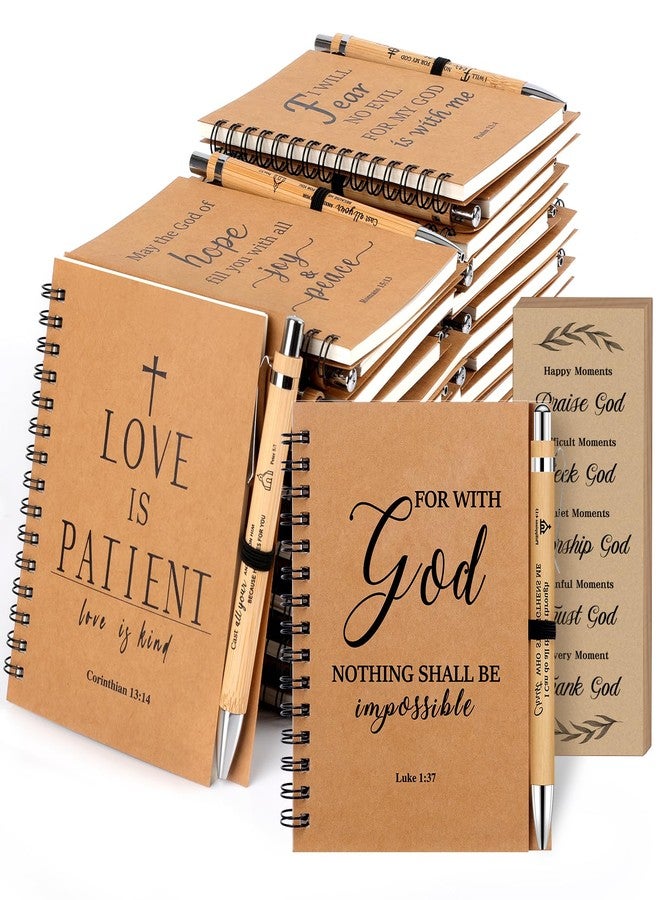 I WILL
Fear
NO EVIL
FOR MY GOD
is with me
Psalm 23:4
May the God of
hope
fill you with all
joy
&
peace
Romans 15:13
LOVE
IS
PATIENT
love is kind
Corinthian 13:14
Cast all your
BECAUSE
FOR YOU
Peter 5:7
FOR WITH
God
NOTHING SHALL BE
impossible
Luke 1:37
I Can do all through
Happy Moments
Praise God
Difficult Moments
Seek God
Quiet Moments
Worship God
Painful Moments
Trust God
Every Moment
Thank God